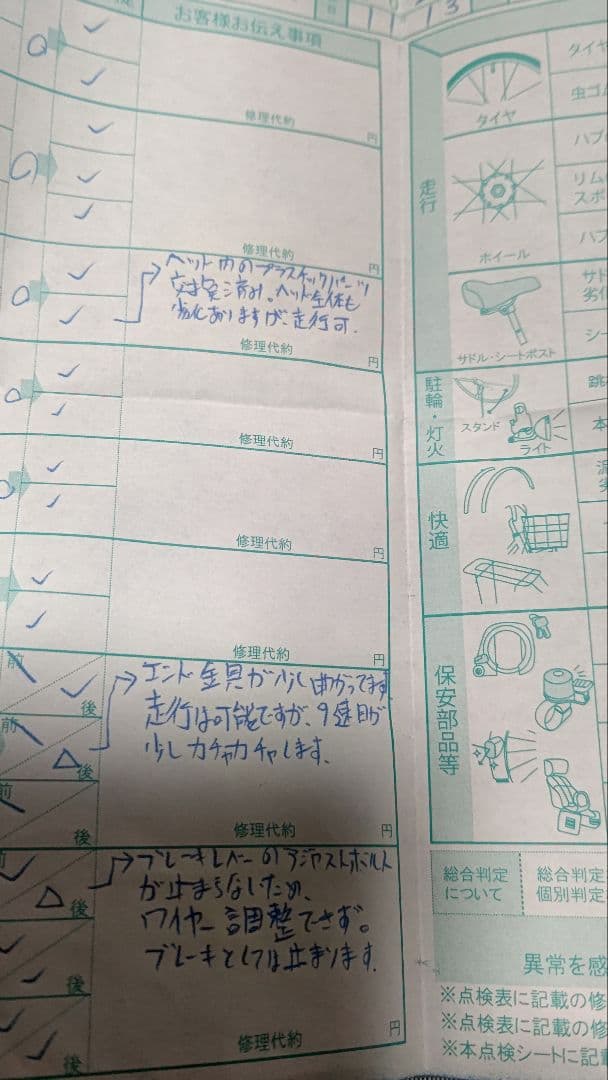 お客様お伝え事項
修理代約 円
修理代約 円
ヘッド内のプラスチックパーツ
交換済み。ヘッド全体も
劣化ありますが、走行可.
修理代約 円
修理代約 円
修理代約 円
修理代約 円
前
後
エンド金具が少し曲がってます.
走行は可能ですが、9速目が
少しカチャカチャします.
前
後
前
後
修理代約 円
前
後
ブレーキレバーのアジャストボルト
が止まらないため、
ワイヤー調整できず。
ブレーキとしては止まります.
後
後
修理代約 円
1 13
走行
タイヤ
タイヤ
虫ゴム
ホイール
ハブ
リム
スポ
ハブ
サドル・シートポスト
サド
劣化
シー
駐輪・灯火
スタンド
ライト
跳
本
快適
劣
保安部品等
総合判定
について
総合判定
個別判定
異常を感
※点検表に記載の修
※点検表に記載の修
※本点検シートに記載